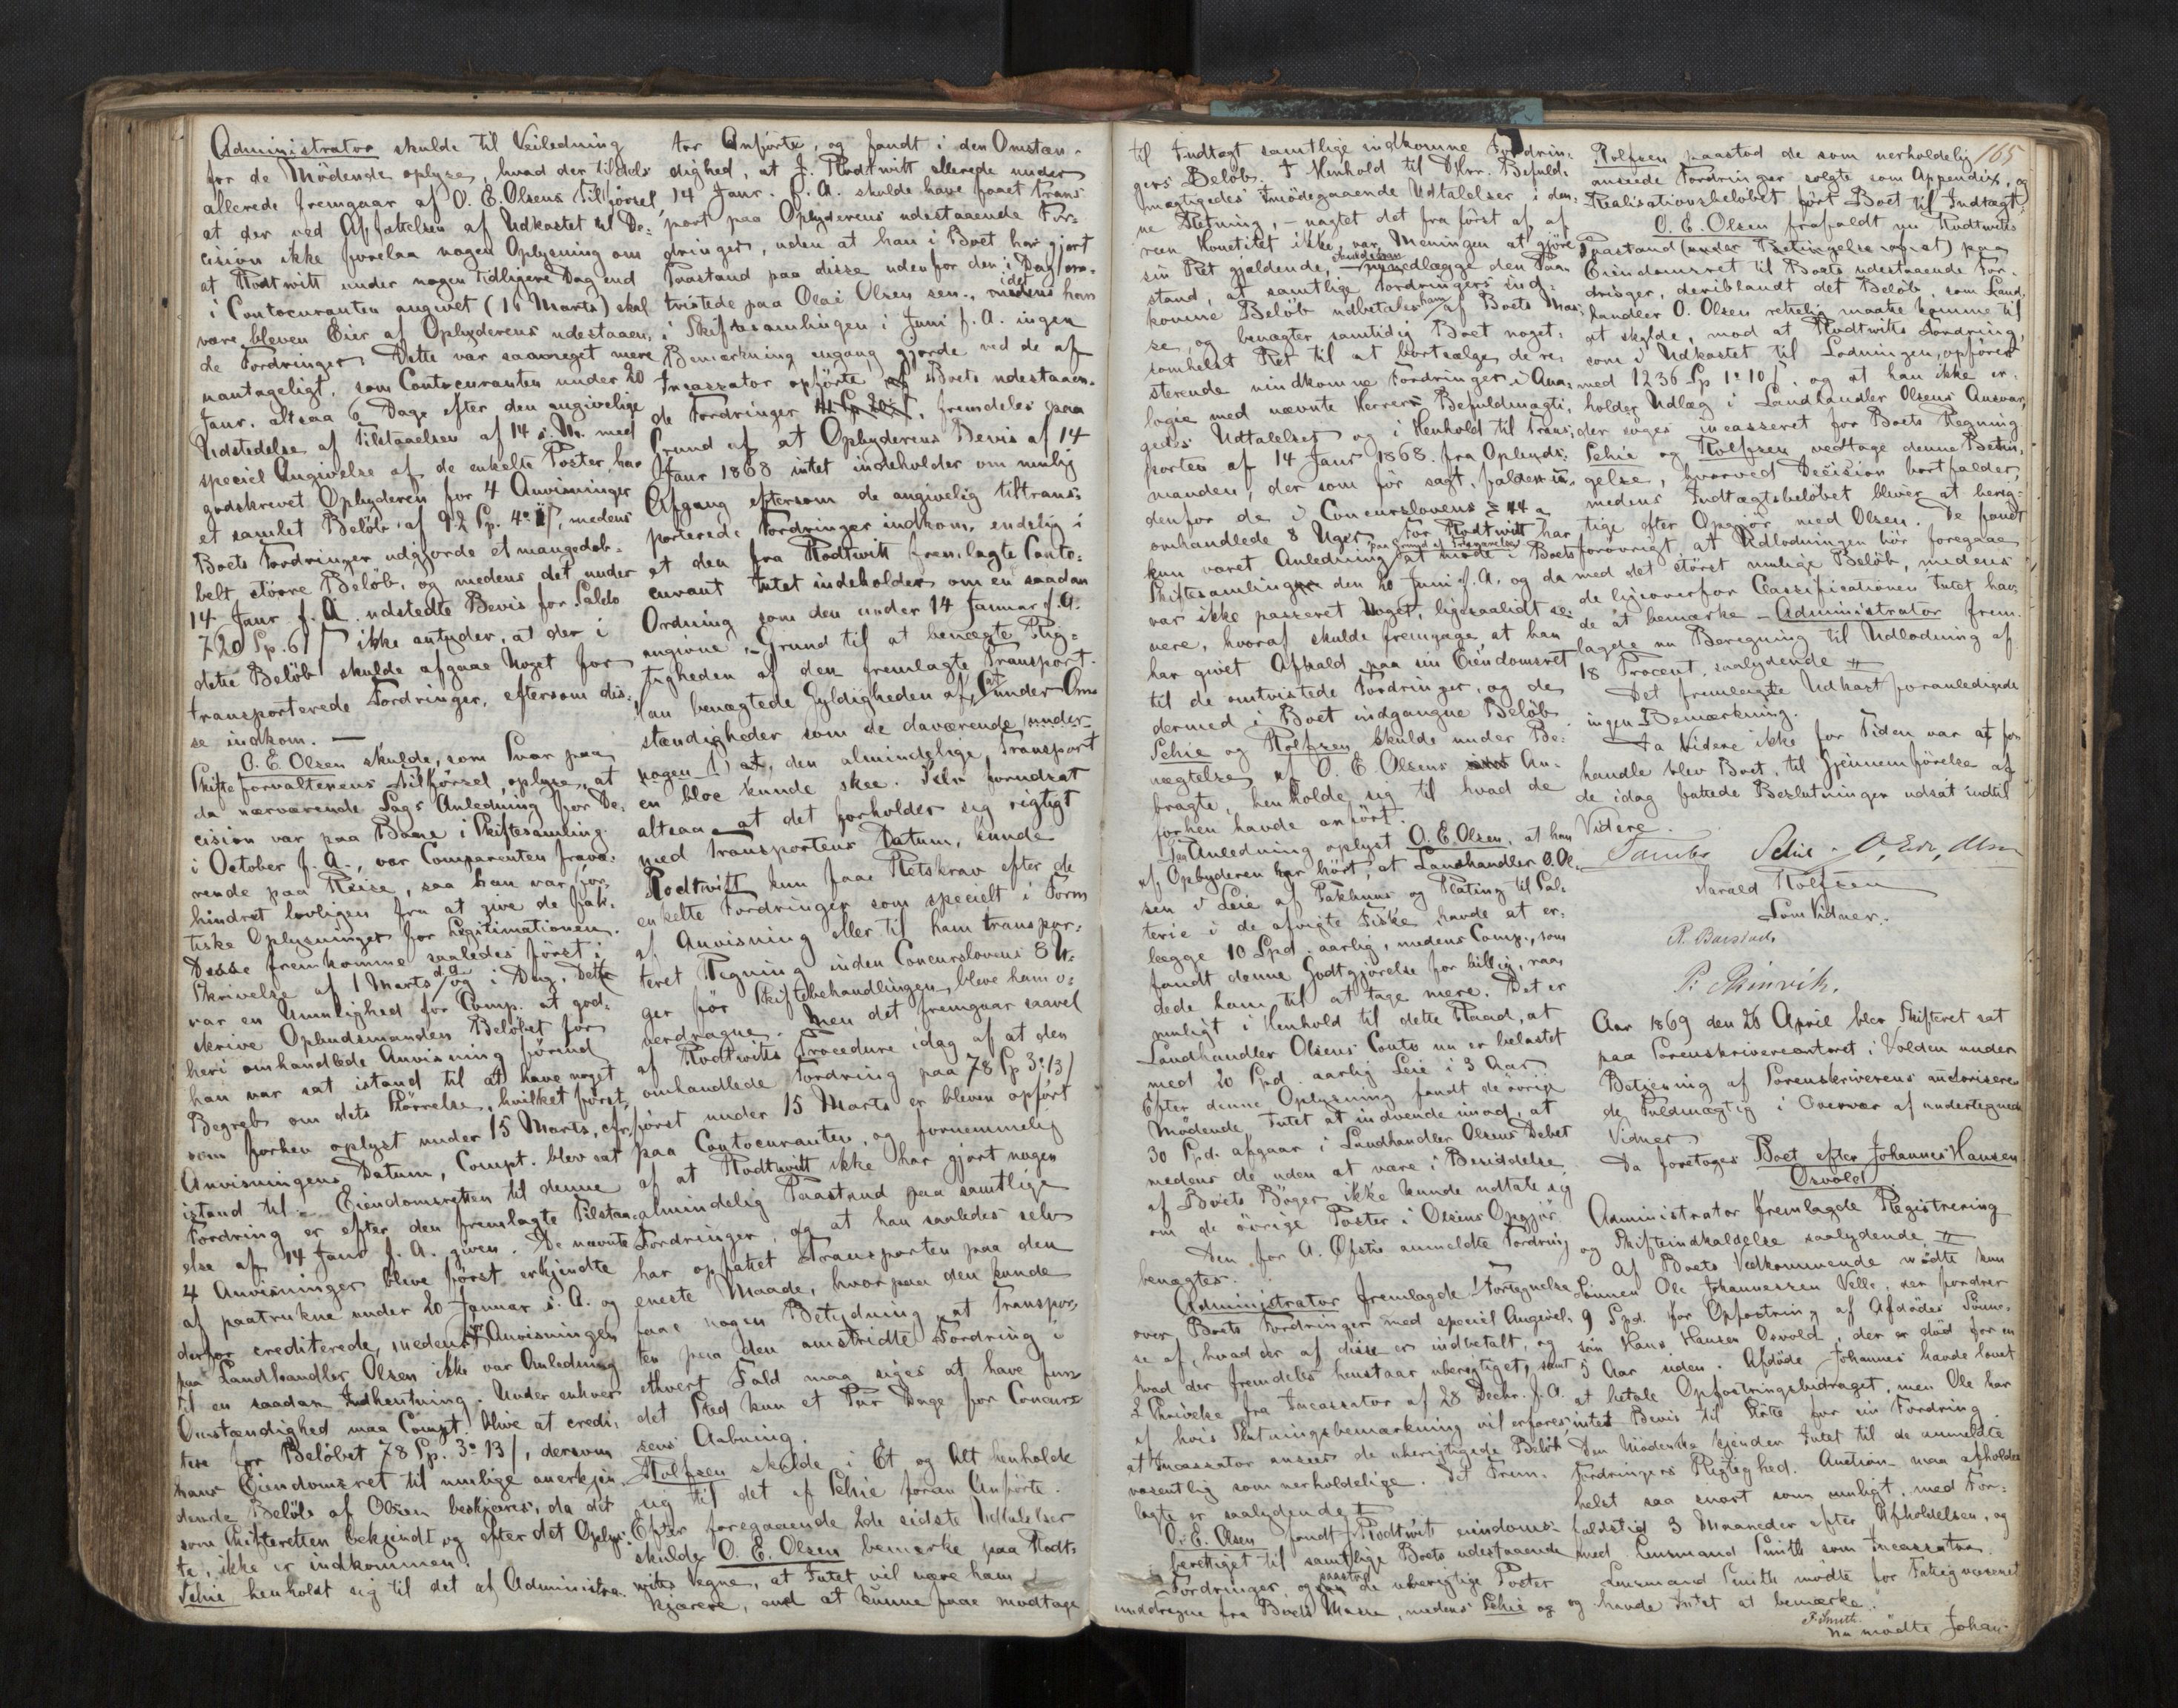 Administrator skulde til Veiledning
for de Mödende oplyse, hvad der tildels
allerede fremgaar af O. E. Olsens Tilförsel,
at der ved Affattelsen af Udkastet til De-
cision ikke forelaa nogen Oplysning om
at Rodtwitt under nogen tidligere Dag end
i Contocuranten angivet (1 Marts) skal
være bleven Eier af Opbyderens udestaaen-
de Fordringer. Dette var saameget mere
uantageligt, som Contocuranten under 20
Janr. altsaa 6 Dage efter den angivelige
Udstedelse af Tilstaaelsen af 14 s. M. med
speciel Angivelse af de enkelte Poster, har
godskrevet Opbyderen for 4 Anvisninger
et samlet Beløb af 92 Sp. 4 medens
Boets Fordringer udgjorde et mangedob-
belt större Beløb, og medens det under
14 Janr f. A. udstedte Bevis for Saldo
720 Sp. 6 ikke antyder, at der i
dette Beløb skulde afgaae Noget for
transporterede Fordringer, eftersom dis-
se indkom. —
O. E. Olsen skulde, som Svar paa
Skifteforvalterens Tilførsel, oplyse, at
da nærværende Sags Anledning for De-
cision var paa Bane i Skiftesamling
i October f. A., var Comparenten fravæ-
rende paa Reise, saa han var for-
hindret lovligen fra at give de fak-
tiske Oplysninger for Legitimationen.
Disse fremkomme saaledes først i
Skrivelse af 1 Marts d. A. og i Dag. Dette
var en Umulighed for Comp. at god-
skrive Opbudsmanden Beløbet for
heri omhandlede Anvisning förend
han var sat istand til at have noget
Begreb om dets Størrelse, hvilket først,
som forhen oplyst under 15 Marts, cfr.
Anvisningens Datum, Compt. blev sat
istand til. — Eiendomsretten til denne
Fordring er efter den fremlagte Tilstaa-
else af 14 Janr f. A. given. De nævnte
4 Anvisninger bleve först erkjendte
af paatrukne under 20 Januar s. A. og
derfor crediterede, medens for Anvisningen
paa Landhandler Olsen ikke var Anledning
til en saadan Indhentning. Under enhver
Omstændighed maa Compt. blive at credi-
tere for Beløbet 78 Sp. 3 13, dersom
hans Eiendomsret til mulige anerkjen-
dende Beløb af Olsen beskjæres, da det
som Skifteretten bekjendt og efter det Oplys-
te, ikke er indkommen.
Schie henholdt sig til det af Administra-
tor Anförte, og fandt i den Omstæn-
dighed, at J. Rodtwitt allerede under
14 Janr. f. A. skulde have faaet trans-
port paa Opbyderens udestaaende For-
dringer, uden at han i Boet har gjort
Paastand paa disse udenfor den i Dag om-
tvistede paa Olai Olsen sen., idet han
i Skiftesamlingen i Juni f. A. ingen
Bemærkning engang gjorde ved de af
Incassator opförte Boets udestaaen-
de Fordringer, fremdeles paa
Grund af at Opbyderens Bevis af 14
Janr 1868 intet indeholder om mulig
Afgang eftersom de angivelig tiltrans-
porterede Fordringer indkom, endelig i
at den fra Rodtwitt fremlagte Conto-
curant Intet indeholder om en saadan
Ordning som den under 14 Januar f. A.
angivne, Grund til at benægte Rig-
tigheden af den fremlagte Transport.
an benægtede Gyldigheden af, at under Om-
stændigheder som de daværende under
nogen at den almindelige Transport
en bloc kunde skee. Selv forudsat
altsaa at det forholder sig rigtigt
med Transportens Datum, kunde
Rodtwitt kun faae Retskrav efter de
enkelte Fordringer som specielt i Form
af Anvisning eller til ham transpor-
teret Regning inden Concurslovens 8 U-
ger før Skiftebehandlingen, bleve ham o-
verdragne. Men det fremgaar saavel
af Rodtwitts Procedure idag af at den
omhandlede Fordring paa 78 Sp 3 13
først under 15 Marts er bleven opført
paa Contocuranten, og fornemmelig
af at Rodtwitt ikke har gjort nogen
almindelig Paastand paa samtlige
Fordringer, og at han saaledes selv
har opfattet Transporten paa den
eneste Maade, hvorpaa den kunde
faae nogen Betydning, at Transpor-
ten paa den omstridte Fordring i
ethvert Fald maa siges at have fun-
det Sted kun et Par Dage for Concurs-
sens Aabning.
Rolfsen skulde i Et og Alt henholde
sig til det af Schie foran Anförte.
Efter foregaaende 2de sidste Udtalelser
skulde O. E. Olsen bemærke paa Rodt-
witts Vegne, at Intet vil være ham
kjærere, end at kunne faae modtage
til Indtægt samtlige indkomne Fordrin-
gers Beløb. I Henhold til Dhrr. Befuld-
mægtigedes imödegaaende Udtalelser i den-
ne Retning, — uagtet det fra först af af
reen Honetitet ikke var Meningen at gjöre
sin Ret gjældende, nedlægge den Paa-
stand, at samtlige Fordringers ind-
komne Beløb udbetales ham af Boets Mas-
se, og benægter samtidig Boet noget-
somhelst Ret til at bortsælge de re-
sterende uindkomne Fordringer i Ana-
logie med nævnte Herrers Befuldmægti-
gedes Udtalelser og i Henhold til Trans-
porten af 14 Janr 1868 fra Opbuds-
manden, der som för sagt, falder u-
denfor de i Concurslovens § 44 a
omhandlede 8 Uger. For Rodtwitt har
kun været Anledning at möde i Boets
Skiftesamling den 20 Juni f. A. og da
var ikke passeret Noget, ligesaalidt se-
nere, hvoraf skulde fremgaae, at han
har givet Afkald paa sin Eiendomsret
til de omtvistede Fordringer, og de
dermed i Boet indgangne Beløb.
Schie og Rolfsen skulde under Be-
nægtelse af O. E. Olsens An-
bragte, henholde sig til hvad de
forhen havde anført.
I Anledning oplyst O. E. Olsen, at han
af Opbyderen har hört, at Landhandler O. Ol-
sen i Leie af Pakhuus og Plating til Sal-
terie i de afvigte Fiske havde at er-
lægge 10 Spd. aarlig, medens Comp., som
fandt denne Godtgjörelse for billig, raa-
dede ham til at tage mere. Det er
muligt i Henhold til dette Raad, at
Landhandler Olsens Conto nu er belastet
med 20 Spd. aarlig Leie i 3 Aar.
Efter denne Oplysning fandt de øvrige
Mødende Intet at indvende imod, at
30 Spd. afgaar i Landhandler Olsens Debet
medens de uden at være i Besiddelse
af Boets Bøger ikke kunde udtale sig
om de övrige Poster i Olsens Opgjör.
Den for A. Øfstie anmeldte Fordring
benægtes.
Administrator fremlagde Fortegnelse
over Boets Fordringer med speciel Angivel-
se af, hvad der af disse er indbetalt, og
hvad der fremdeles henstaar uberigtiget, samt
Skrivelse fra Incassator af 28 Decbr. f. A.
af hvis Slutningsbemærkning vil erfares,
at Incassator ansees de uberigtigede Beløb
væsentlig som uerholdelige. Det Frem-
lagte er saalydende #
O. E. Olsen fandt Rodtwitt eiendoms-
berettiget til samtlige Boets udestaaende
Fordringer, og paastod de uberigtige Poster
uddragne fra Boets Masse, medens Schie og
165
Rolfsen paastod de som uerholdelig
ansede Fordringer solgte som Appendix, og
Realisationsbeløbet fört Boet til Indtægt.
O. E. Olsen frafaldt nu Rodtwitts
Paastand (under Betingelse af at) paa
Eiendomsret til Boets udestaaende For-
dringer, deriblandt det Beløb, som Land-
handler O. Olsen rettelig maatte komme til
at skylde, mod at Rodtwitts Fordring,
som i Udkastet til Lodningen, opföres
med 1236 Sp 1 10, og at han ikke er-
holder Udlæg i Landhandler Olsens Ansvar,
der søges incasseret for Boets Regning
Schie og Rolfsen vedtage denne Betin-
gelse, hvorved Decision bortfalder,
medens Indtægtsbeløbet bliver at berig-
tige efter Opgjör med Olsen. De fandt
forøvrigt, at Udlodningen bör foregaae
med det størst mulige Beløb, medens
de ligeoverfor Classificationen Intet hav-
de at bemærke — Administrator frem-
lagde nu Beregning til Udlodning af
18 Procent, saalydende #
Det fremlagte Udkast foranledigede
ingen Bemærkning.
Da Videre ikke for Tiden var at for-
handle blev Boet, til Gjennemförelse af
de idag fattede Beslutninger udsat indtil
Videre.
Schie O, Edv, Olsen
Harald Rolfsen
Som Vidner.
R. Baestad
P. Steinvik.
Aar 1869 den 26 April blev Skifteret sat
paa Sorenskrivercontoret i Volden under
Betjening af Sorenskriverens authorisere-
de Fuldmægtig i Overvær af undertegnede
Vidner
Da foretoges Boet efter Johannes Hansen
Osvold
Administrator fremlagde Registrering
og Skifteindkaldelse saalydende #
Af Boets Vedkommende mödte kun
Sönnen Ole Johannessen Velle, der fordrer
9 Spd. for Opfostring af Afdødes Sønne-
søn Hans Hansen Osvold, der er död for en
5 Aar siden. Afdöde Johannes havde lovet
at betale Opfostringsbidraget, men Ole har
intet Bevis til Støtte for sin Fordring
Den Mødende kjender Intet til de anmeldte
Fordringers Rigtighed. Auction maa afholdes
helst saa snart som muligt, med For-
faldstid 3 Maaneder efter Afholdelsen, og
med Lensmand Smith som Incassator.
Lensmand Smith mödte for Fattigvæsenet
og havde Intet at bemærke.
F. Smith.
Nu mödte Johan-